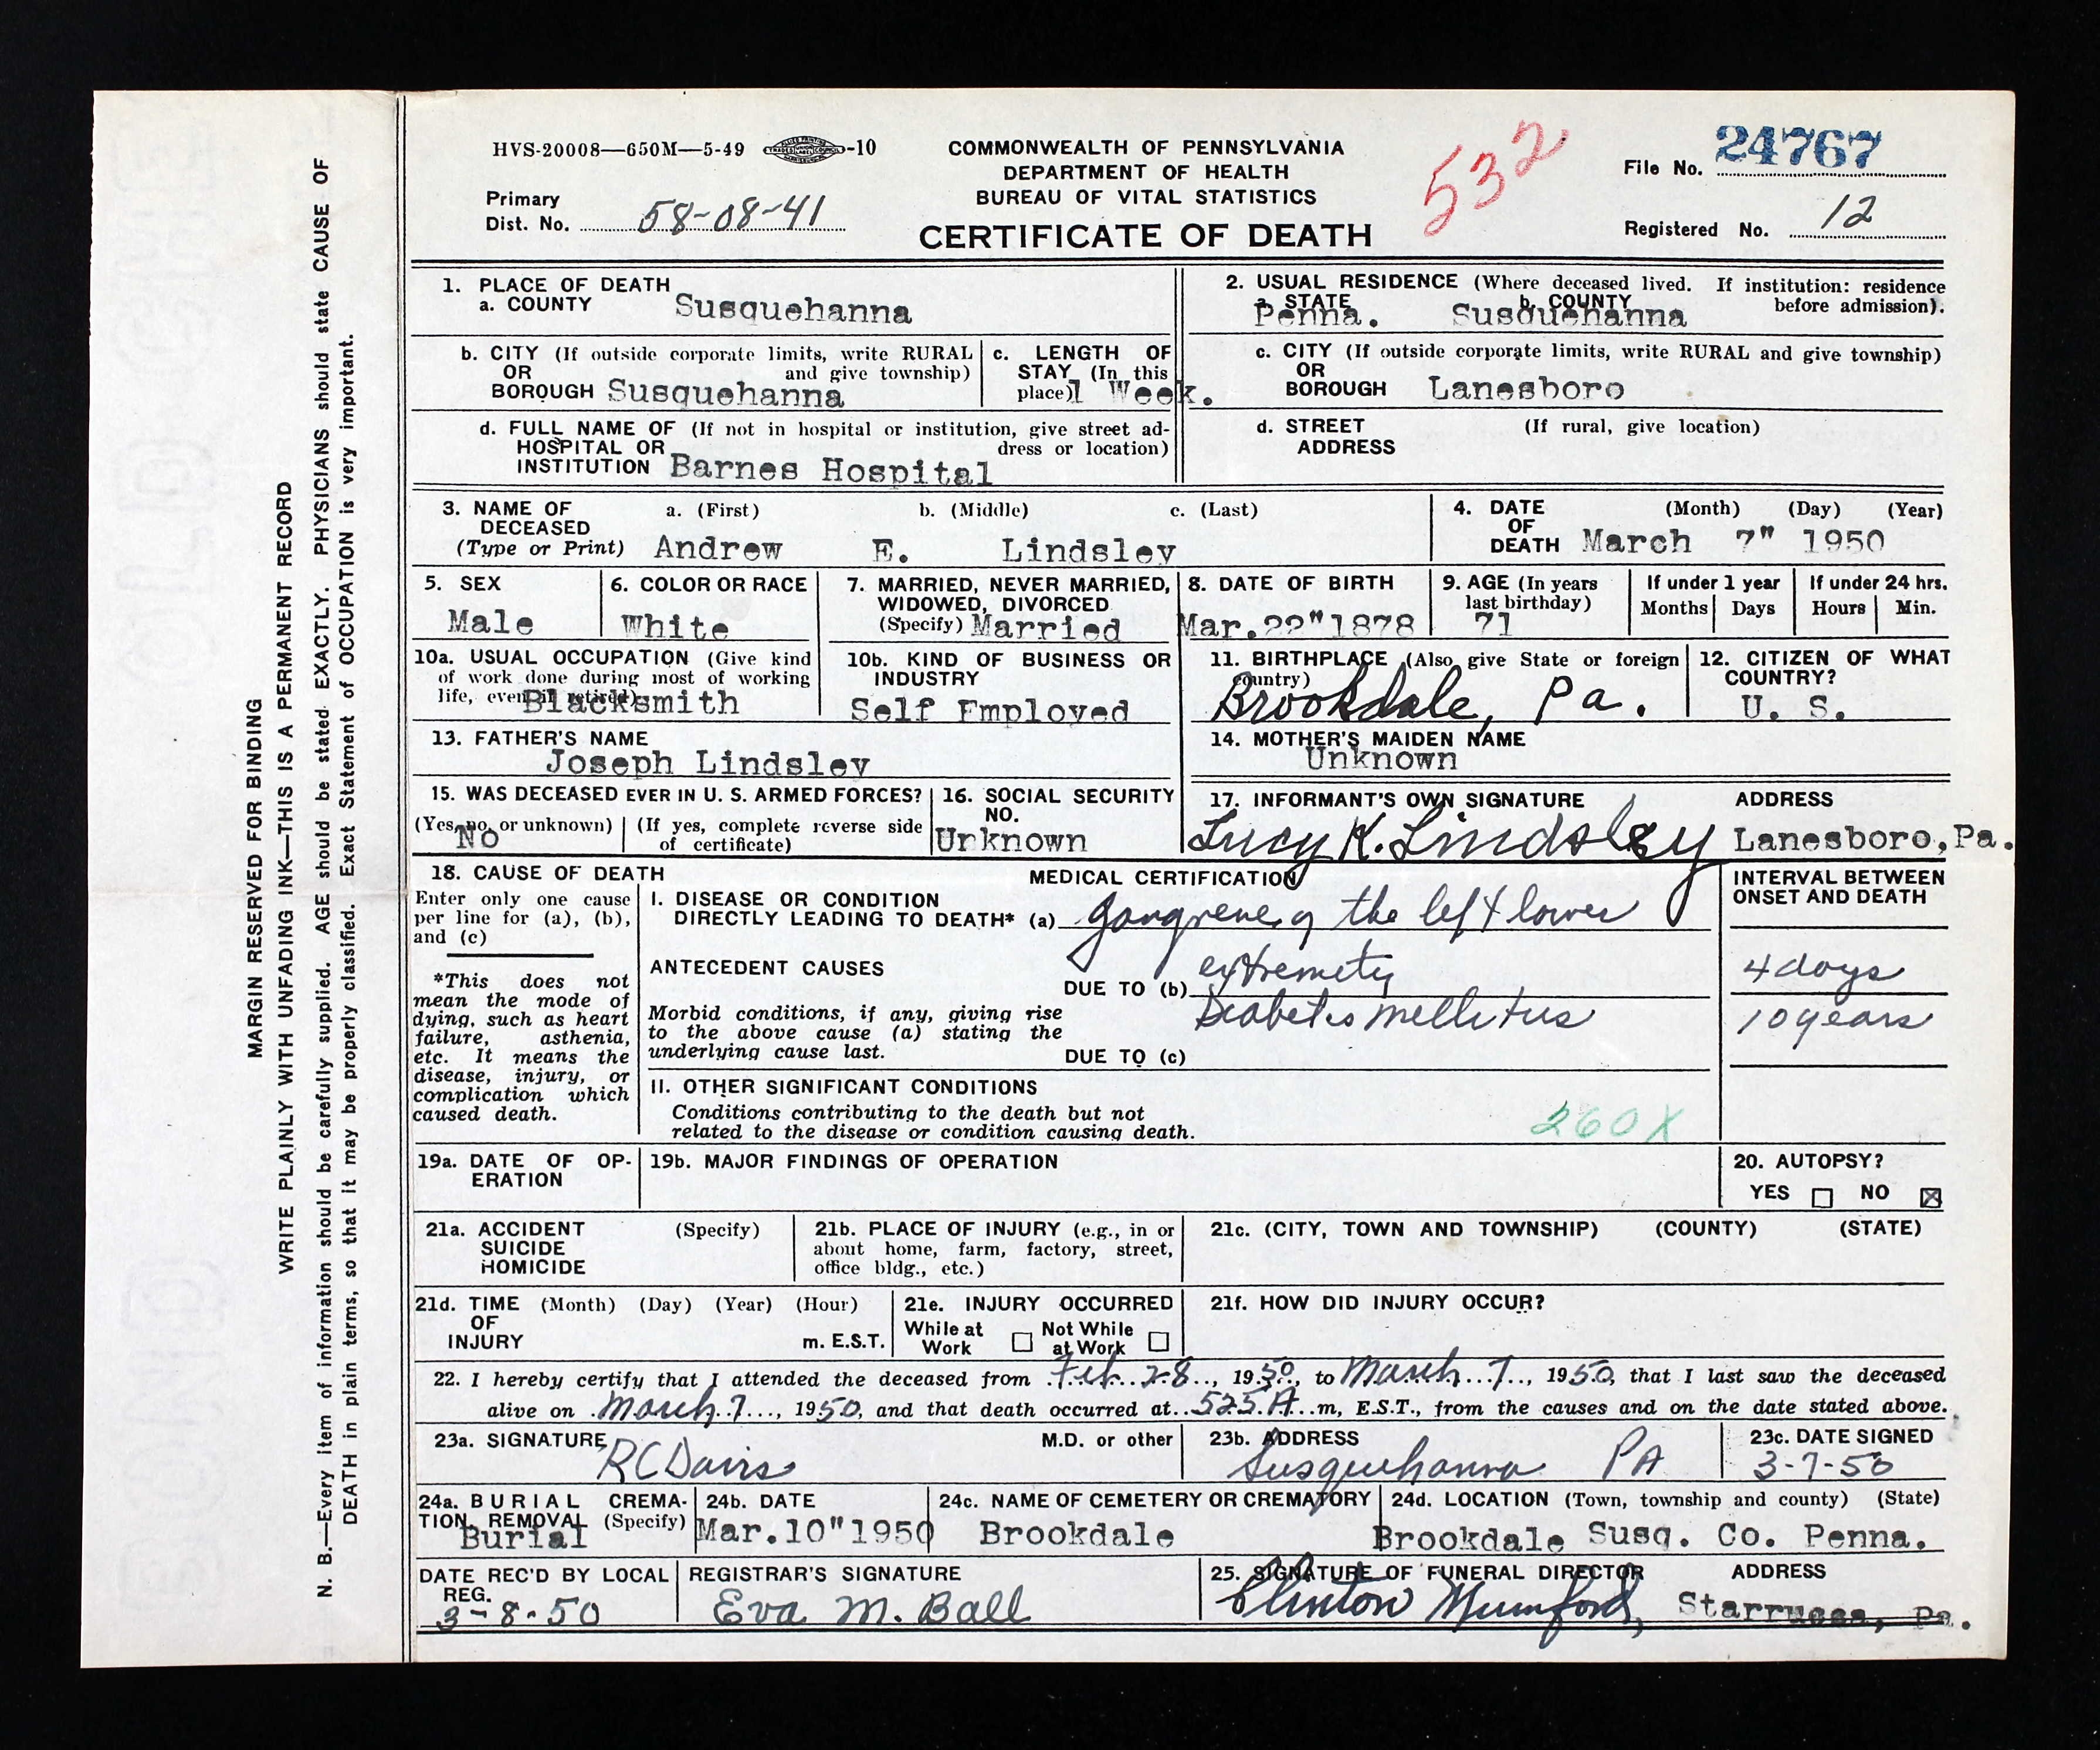 HVS-20008—650M—5-49 -10
COMMONWEALTH OF PENNSYLVANIA
DEPARTMENT OF HEALTH
BUREAU OF VITAL STATISTICS
CERTIFICATE OF DEATH
532
File No. 24767
Primary
Dist. No. 58-08-41
Registered No. 12
1. PLACE OF DEATH
a. COUNTY Susquehanna
2. USUAL RESIDENCE (Where deceased lived. If institution: residence before admission).
a. STATE Penna. b. COUNTY Susquehanna
b. CITY (If outside corporate limits, write RURAL
OR and give township)
BOROUGH Susquehanna
c. LENGTH OF
STAY (In this
place) 1 Week.
c. CITY (If outside corporate limits, write RURAL and give township)
OR
BOROUGH Lanesboro
d. FULL NAME OF (If not in hospital or institution, give street ad-
HOSPITAL OR dress or location)
INSTITUTION Barnes Hospital
d. STREET (If rural, give location)
ADDRESS
3. NAME OF a. (First) b. (Middle) c. (Last)
DECEASED
(Type or Print) Andrew E. Lindsley
4. DATE (Month) (Day) (Year)
OF
DEATH March 7" 1950
5. SEX
Male
6. COLOR OR RACE
White
7. MARRIED, NEVER MARRIED,
WIDOWED, DIVORCED
(Specify) Married
8. DATE OF BIRTH
Mar.22"1878
9. AGE (In years
last birthday)
71
If under 1 year
Months Days
If under 24 hrs.
Hours Min.
10a. USUAL OCCUPATION (Give kind
of work done during most of working
life, even if retired) Blacksmith
10b. KIND OF BUSINESS OR
INDUSTRY
Self Employed
11. BIRTHPLACE (Also give State or foreign
country)
Brookdale, Pa.
12. CITIZEN OF WHAT
COUNTRY?
U. S.
13. FATHER'S NAME
Joseph Lindsley
14. MOTHER'S MAIDEN NAME
Unknown
15. WAS DECEASED EVER IN U. S. ARMED FORCES?
(Yes, no, or unknown) (If yes, complete reverse side
No of certificate)
16. SOCIAL SECURITY
NO.
Unknown
17. INFORMANT'S OWN SIGNATURE ADDRESS
Lucy K. Lindsley Lanesboro, Pa.
18. CAUSE OF DEATH
Enter only one cause
per line for (a), (b),
and (c)
*This does not
mean the mode of
dying, such as heart
failure, asthenia,
etc. It means the
disease, injury, or
complication which
caused death.
MEDICAL CERTIFICATION
I. DISEASE OR CONDITION
DIRECTLY LEADING TO DEATH* (a) gangrene of the left lower
ANTECEDENT CAUSES extremety
DUE TO (b)
Diabetes mellitus
Morbid conditions, if any, giving rise
to the above cause (a) stating the
underlying cause last.
DUE TO (c)
INTERVAL BETWEEN
ONSET AND DEATH
4 days
10 years
II. OTHER SIGNIFICANT CONDITIONS
Conditions contributing to the death but not
related to the disease or condition causing death.
260X
19a. DATE OF OP-
ERATION
19b. MAJOR FINDINGS OF OPERATION
20. AUTOPSY?
YES NO
21a. ACCIDENT (Specify)
SUICIDE
HOMICIDE
21b. PLACE OF INJURY (e.g., in or
about home, farm, factory, street,
office bldg., etc.)
21c. (CITY, TOWN AND TOWNSHIP) (COUNTY) (STATE)
21d. TIME (Month) (Day) (Year) (Hour)
OF
INJURY m. E.S.T.
21e. INJURY OCCURRED
While at Not While
Work at Work
21f. HOW DID INJURY OCCUR?
22. I hereby certify that I attended the deceased from Feb. 28, 1950, to March 7, 1950, that I last saw the deceased
alive on March 7, 1950, and that death occurred at 525 A m, E.S.T., from the causes and on the date stated above.
23a. SIGNATURE M.D. or other
RC Davis
23b. ADDRESS
Susquehanna PA
23c. DATE SIGNED
3-7-50
24a. BURIAL CREMA-
TION, REMOVAL (Specify)
Burial
24b. DATE
Mar.10"1950
24c. NAME OF CEMETERY OR CREMATORY
Brookdale
24d. LOCATION (Town, township and county) (State)
Brookdale Susq. Co. Penna.
DATE REC'D BY LOCAL
REG.
3-8-50
REGISTRAR'S SIGNATURE
Eva M. Ball
25. SIGNATURE OF FUNERAL DIRECTOR ADDRESS
Clinton Mumford, Starrucca, Pa.
MARGIN RESERVED FOR BINDING
WRITE PLAINLY WITH UNFADING INK—THIS IS A PERMANENT RECORD
N. B.—Every item of information should be carefully supplied. AGE should be stated EXACTLY. PHYSICIANS should state CAUSE OF
DEATH in plain terms, so that it may be properly classified. Exact Statement of OCCUPATION is very important.